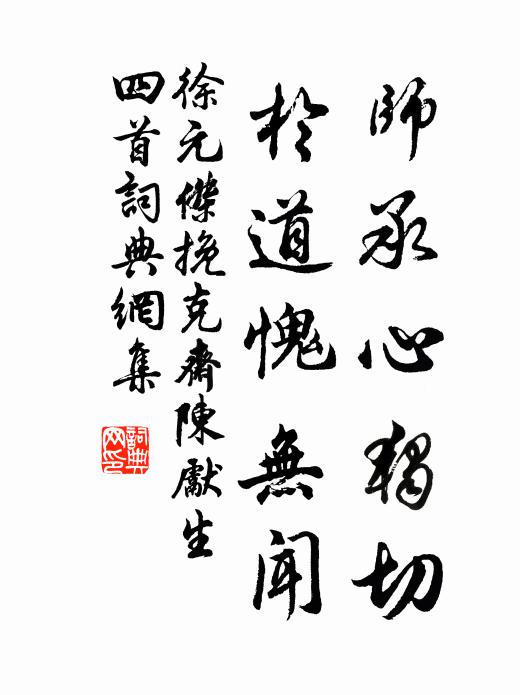 師承心獨切
於道愧無聞
徐元傑挽克齋陳獻生
四首詞典網集
詞典
网印